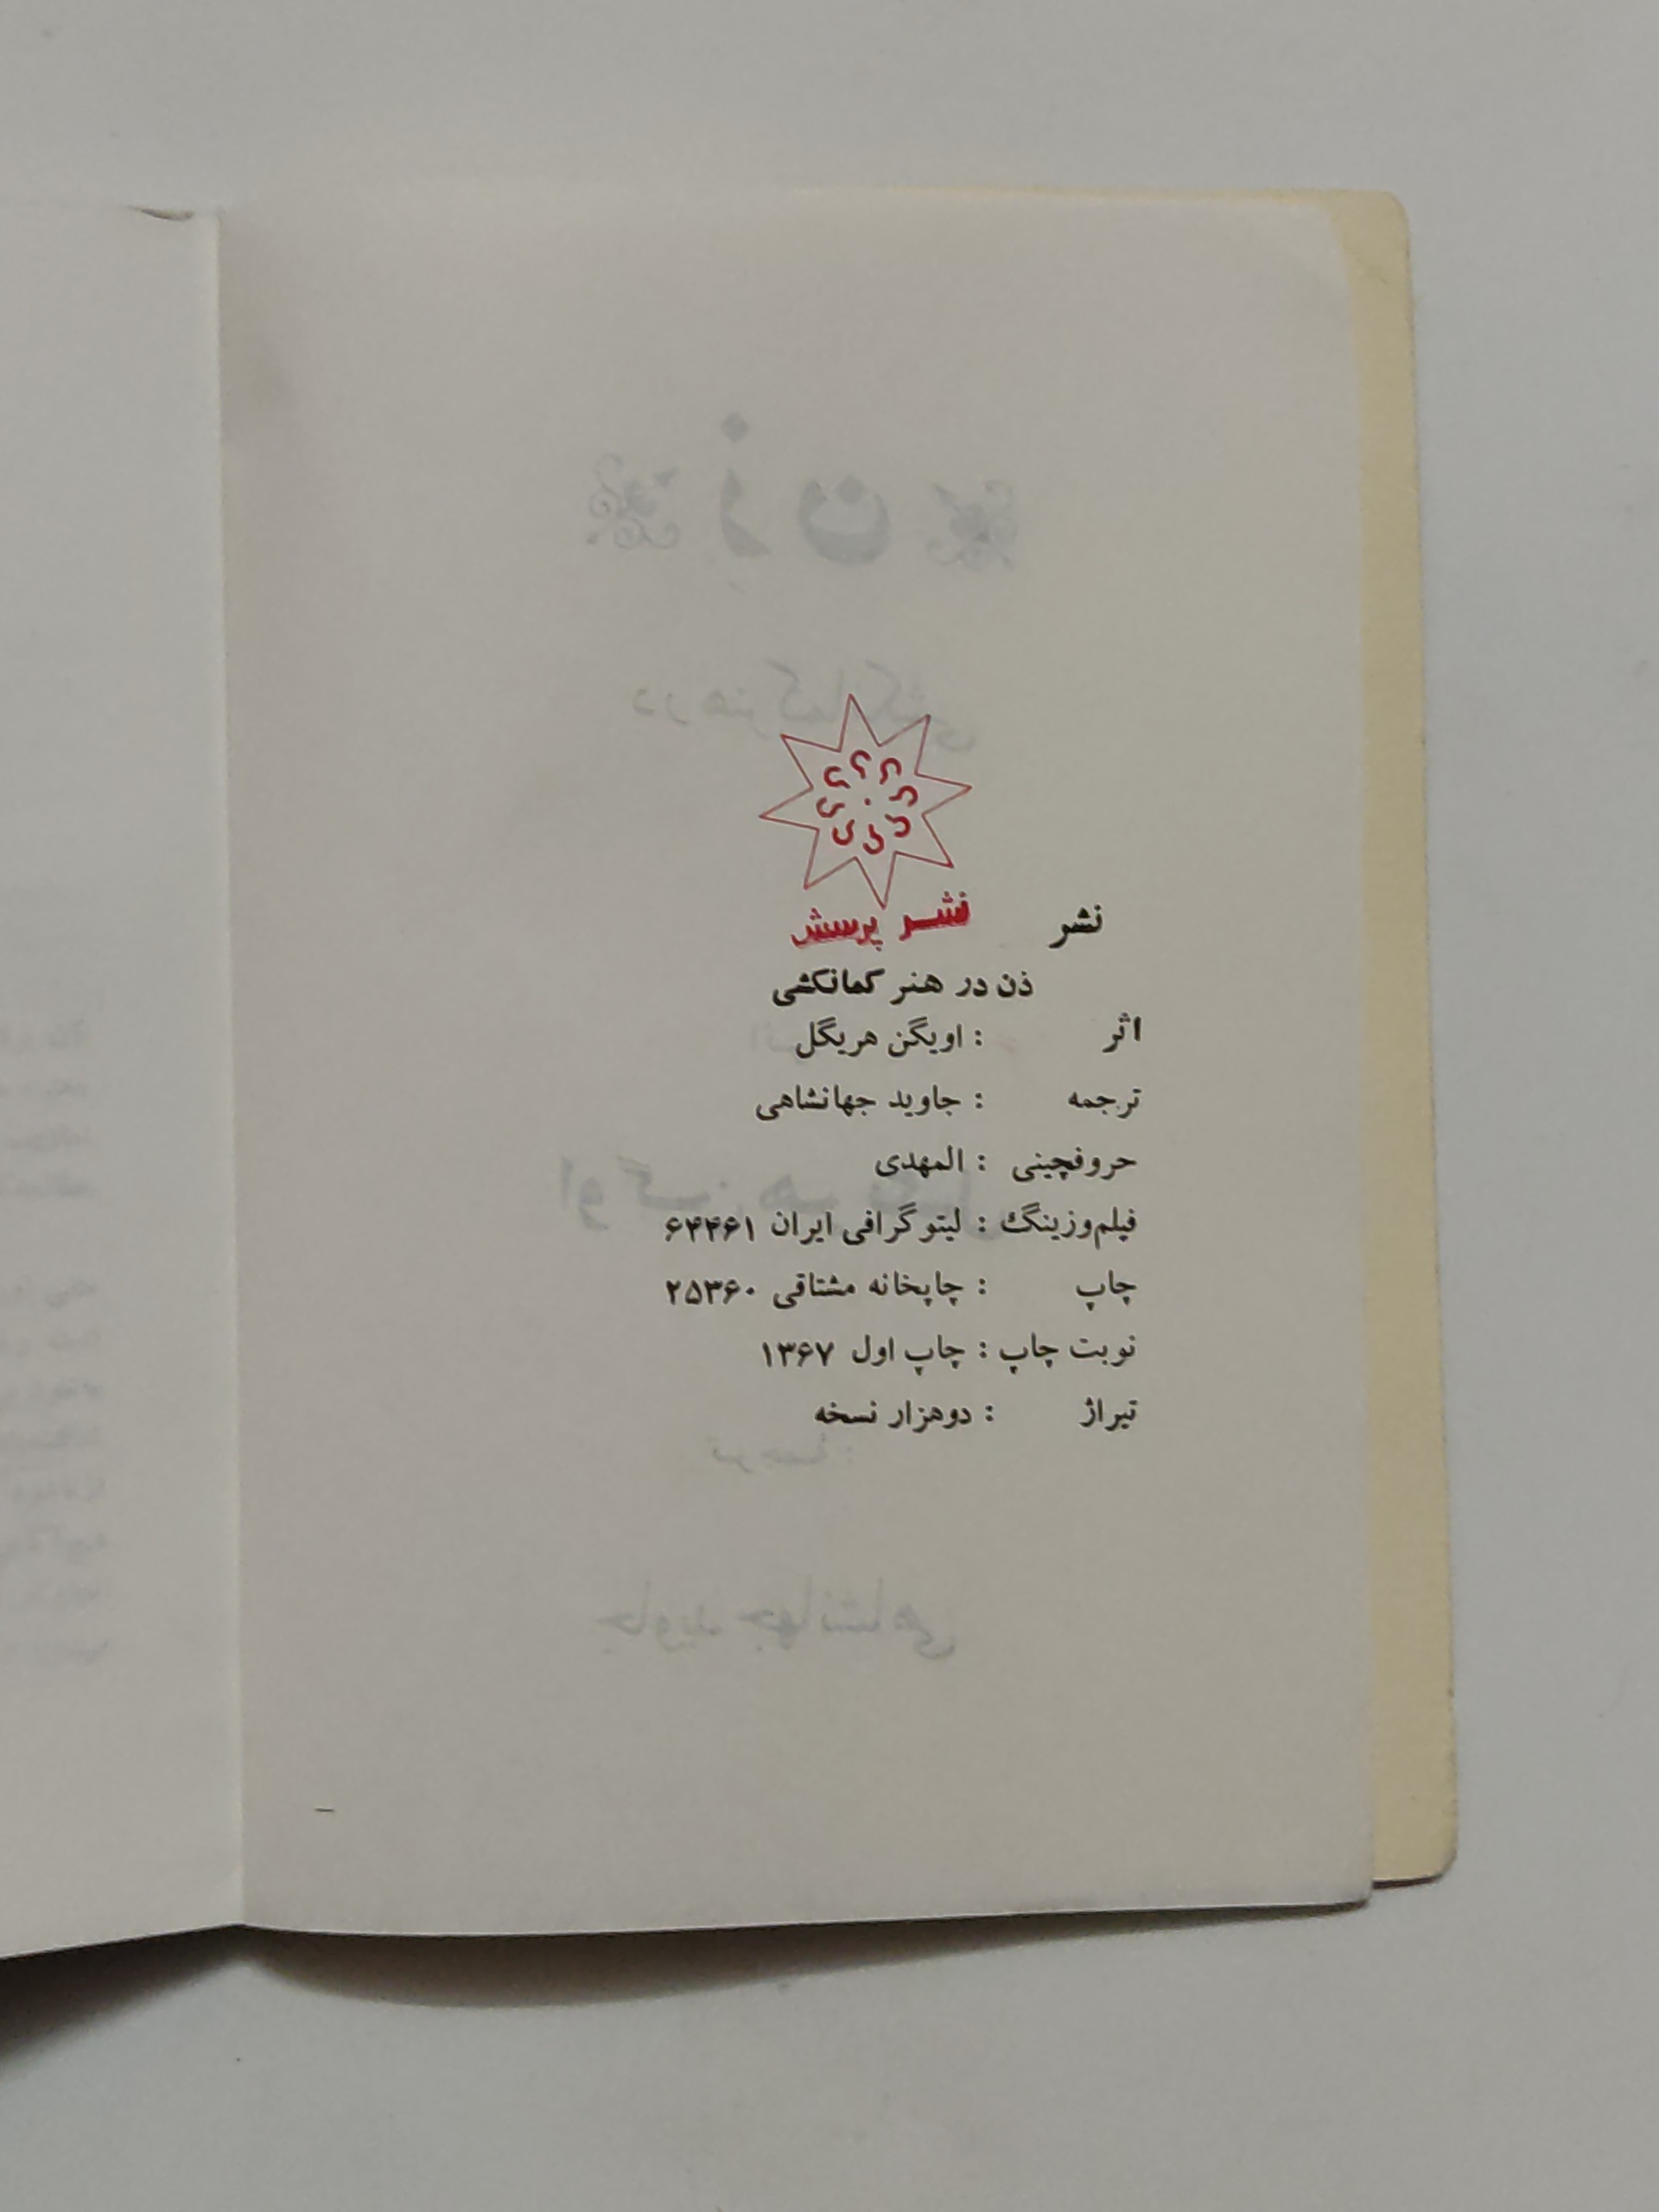 نشر نشر پرسش
ذن در هنر کمانکشی
اثر : اویگن هریگل
ترجمه : جاوید جهانشاهی
حروفچینی : المهدی
فیلم‌وزینگ : لیتوگرافی ایران ۶۴۴۶۱
چاپ : چاپخانه مشتاقی ۲۵۳۶۰
نوبت چاپ : چاپ اول ۱۳۶۷
تیراژ : دوهزار نسخه